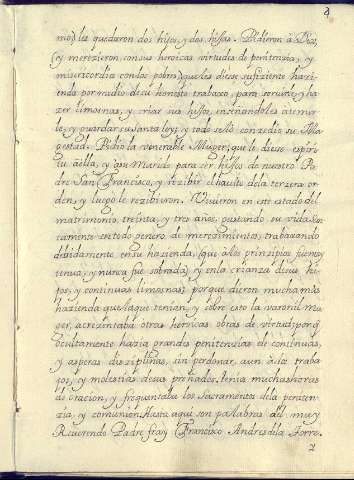 mo) les quedaron dos hijos, y dos hijas. Pidieron à Dios,
(y merezieron, con sus heroicas virtudes de penitenzia, y
misericordia con los pobres) que les diese sufiziente hazi-
enda por medio de su honesto trabaxo, para servirle, y ha-
zer limosnas, y criar sus hijos, enseñandoles à temer-
le, y guardar su Santa ley; y todo se lo conzedio su Ma-
gestad. Pidio la venerable Muger, que le diese espiri-
tu à ella, y à su Marido para ser hijos de nuestro Pa-
dre San Francisco, y rezibir el habito dela terzera or-
den, y luego le rezibieron. Vivieron en este estado del
matrimonio, treinta, y tres años, gastando su vida San-
tamente en todo genero de merezimientos, trabaxando
debidamente en su hazienda, (que à los prinzipios fue muy
tenua, y nunca fue sobrada) y en la crianza de sus hi-
jos, y continuas limosnas; porque dieron mucha mas
hazienda que la que tenian, y sobre esto la varonil mu-
ger, acrezentaba otras heroicas obras de virtud; porq
ocultamente hazia grandes penitenzias de continuas,
y asperas disziplinas, sin perdonar, aun à los traba-
xos, y molestias de sus preñados. tenia muchas horas
de orazion, y frequentaba los Sacramentos dela peniten-
zia, y comunion. Hasta aqui son palabras del muy
Reverendo Padre fray Francisco Andres dela Torre.
2